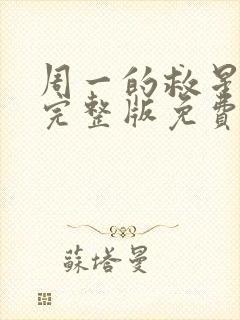 周一的救星
完整版免費
蘇塔曼